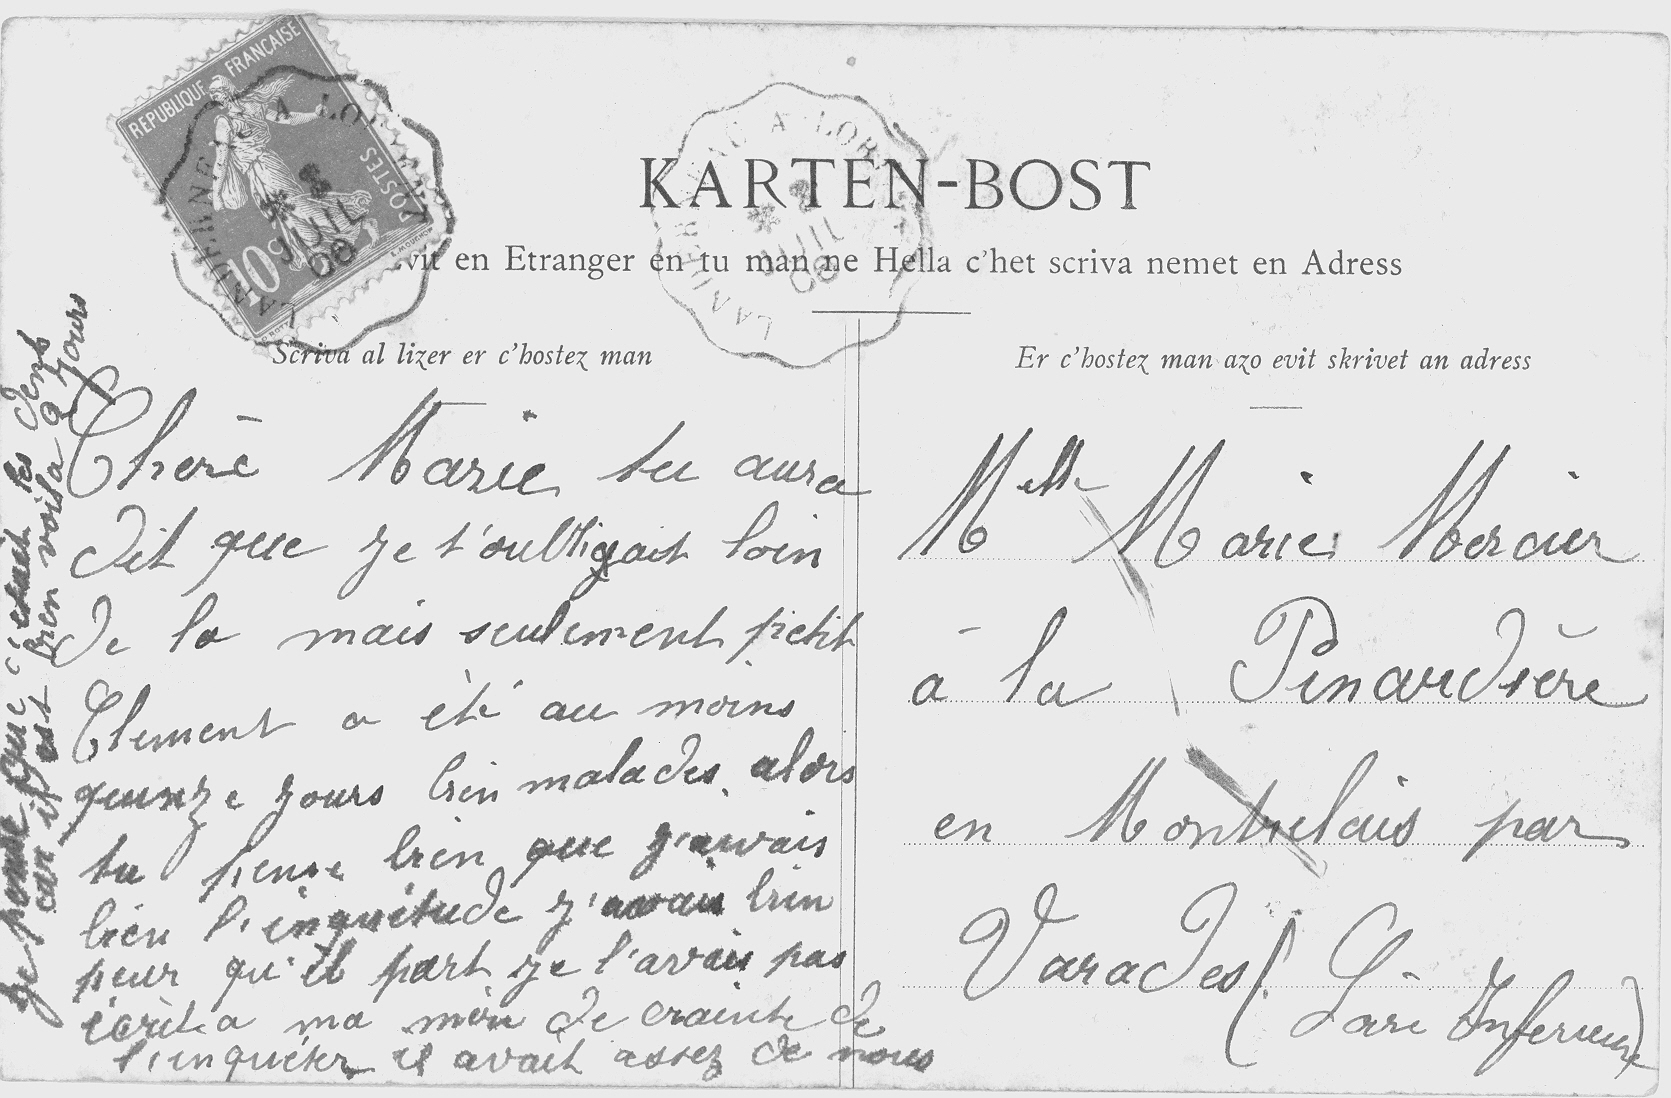 REPUBLIQUE FRANÇAISE
POSTES
10c
L. MOUCHON
LANDERNEAU A LORIENT
JUIL
08
LANDERNEAU A LORIENT
JUIL
08
KARTEN-BOST
vit en Etranger en tu man ne Hella c'het scriva nemet en Adress
Scriva al lizer er c'hostez man
Er c'hostez man azo evit skrivet an adress
Chère Marie tu aura
dit que je t'oubligait loin
de la mais seulement petit
Clement a été au moins
quinze jours bien malades alors
tu pense bien que j'avais
bien l'inquétude j'avais bien
peur qu'il part je l'avais pas
écrit a ma mère de crainte de
l'inquéter il avait assez de nous
je pense que c'était les dents
car il est bien voila 9 jours
Melle Marie Mercier
à la Pinardière
en Montrelais par
Varades (Loire Inferieure)